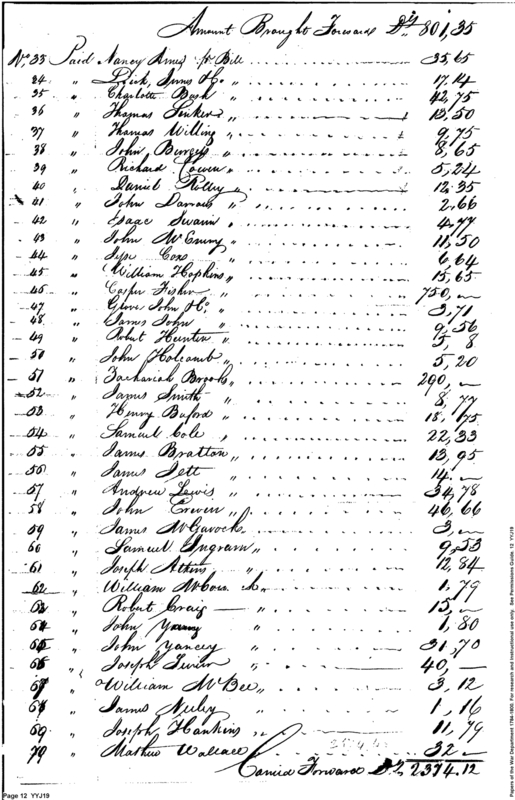 Amount Brought Forward Ds 801,35
No. 33 Paid Nancy Ames pr Bill 35,65
34 " & Co " 17,14
35 " Charlotte Bash " 42,75
36 " Thomas " 13,50
37 " Thomas Willing " 9,75
38 " John Burges " 8,65
39 " Richard Cowen " 5,24
40 " Daniel " 12,35
41 " John " 2,66
42 " Isaac Swann " 4,77
43 " John McEnery " 11,50
44 " Jesse Cox " 6,64
45 " William Hopkins " 15,65
46 " Casper Fisher " 750,—
47 " John " 3,71
48 " James John " 9,56
49 " Robert Hunter " 5,8
50 " John Holcamb " 5,20
51 " Zachariah Brooks " 290,—
52 " James Smith " 8,77
53 " Henry Buford " 18,75
54 " Samuel Cole " 22,33
55 " James Bratton " 13,95
56 " James Jett " 14,—
57 " Andrew Lewis " 34,78
58 " John Craven " 46,66
59 " James McGavock " 3,—
60 " Samuel Ingram " 9,53
61 " Joseph Atkins " 12,84
62 " William 1,79
63 " Robert Craig — " 15,—
64 " John Young " 1,80
65 " John Yancey " 31,70
66 " Joseph " 40,—
67 " William McBee " 3,12
68 " James Neeley " 1,16
69 " Joseph Hankins " 11,79
70 " Mathew Wallace 32—
Carried Forward Ds 2374.12
Page 12 YYJ19
Papers of the War Department 1784-1800. For research and instructional use only. See Permissions Guide. 12 YYJ19